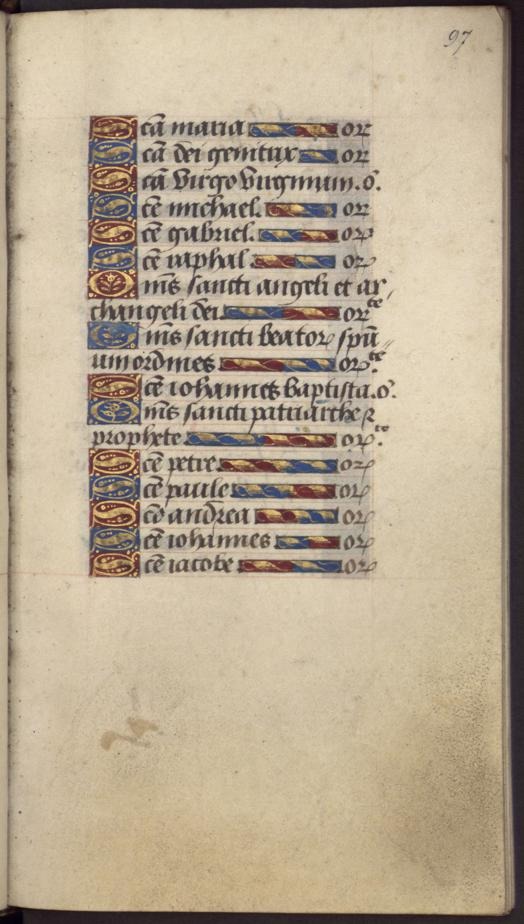 97
Scã maria or
Scã dei genitrix or
Scã virgo virginum. o.
Scē michael. or
Scē gabriel. or
Scē raphal or
Oms̄ sancti angeli et ar/
changeli dei orte
Oms̄ sancti beator spū/
um ordines orte.
Scē iohannes baptista. o.
Oms̄ sancti patriarche ⁊
prophete orte.
Scē petre or
Scē paule or
Scē andrea or
Scē iohannes or
Scē iacobe or